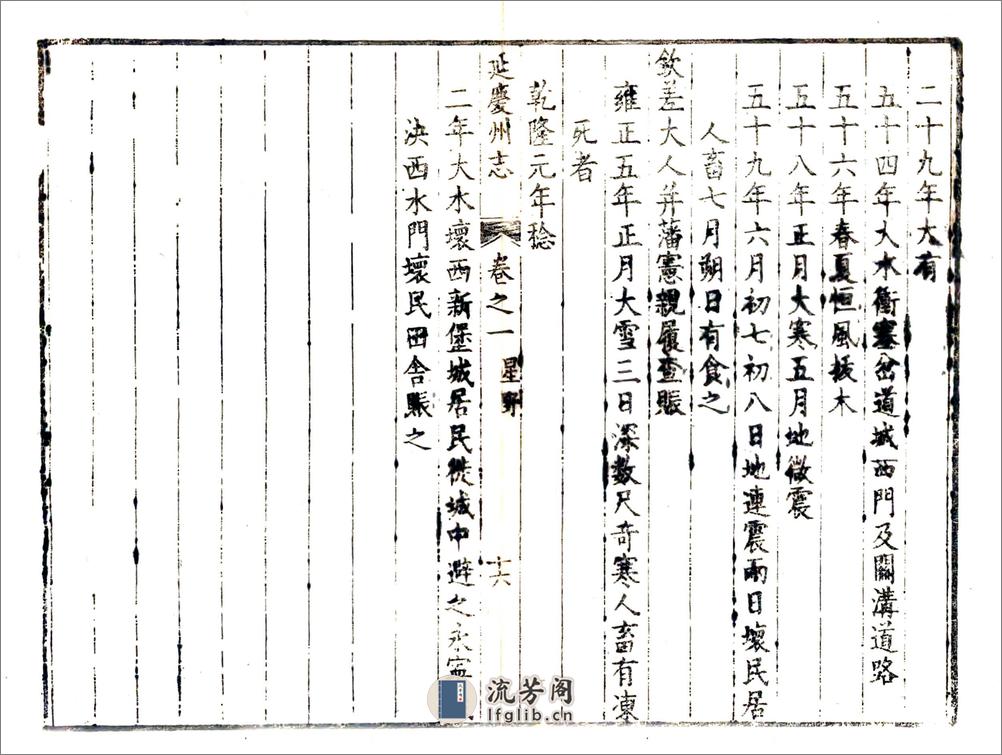 二十九年大有
五十四年大水衝塞岔道城西門及關溝道路
五十六年春夏恒風拔木
五十八年正月大寒五月地微震
五十九年六月初七初八日地連震兩日壞民居
人畜七月朔日有食之
欽差大人并藩憲親履查賑
雍正五年正月大雪三日深數尺奇寒人畜有凍
死者
乾隆元年稔
延慶州志 卷之一 星野 十六
二年大水壞西新堡城居民徙城中避之永寧
決西水門壞民田舍賑之
流芳阁
lfglib.cn